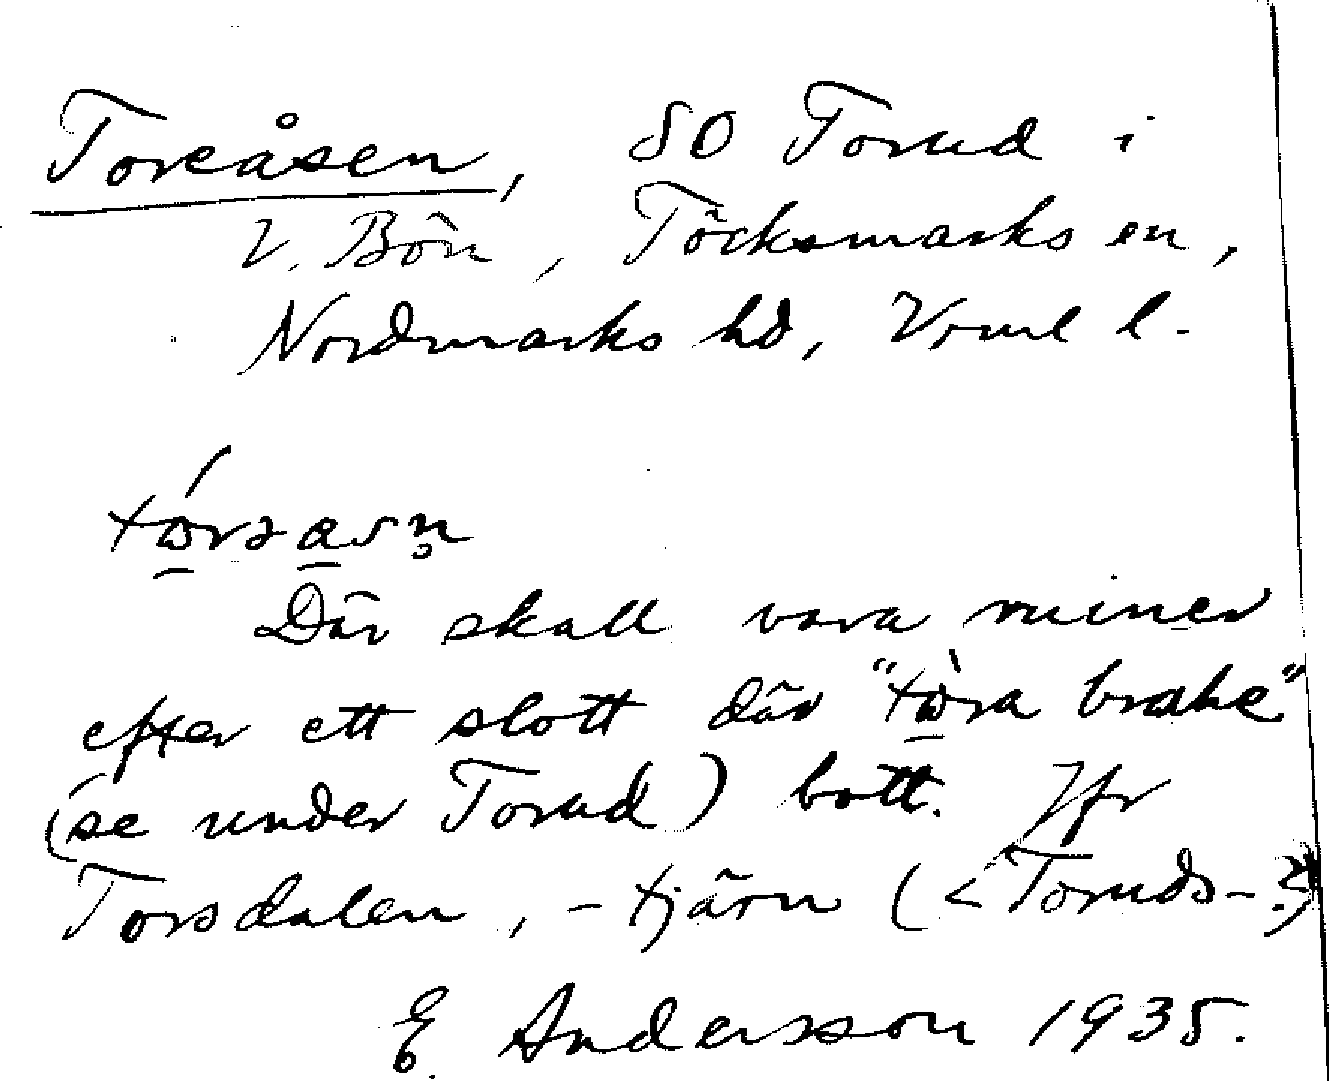 Toreåsen, SO Torud i
V. Bön, Töcksmarks sn,
Nordmarks hd, Vrml l.
Där skall vara ruiner
efter ett slott där "tòra brahe"
(se under Torud) bott. Jfr
Torsdalen, -tjärn (<Toruds-?)
E. Andersson 1935.